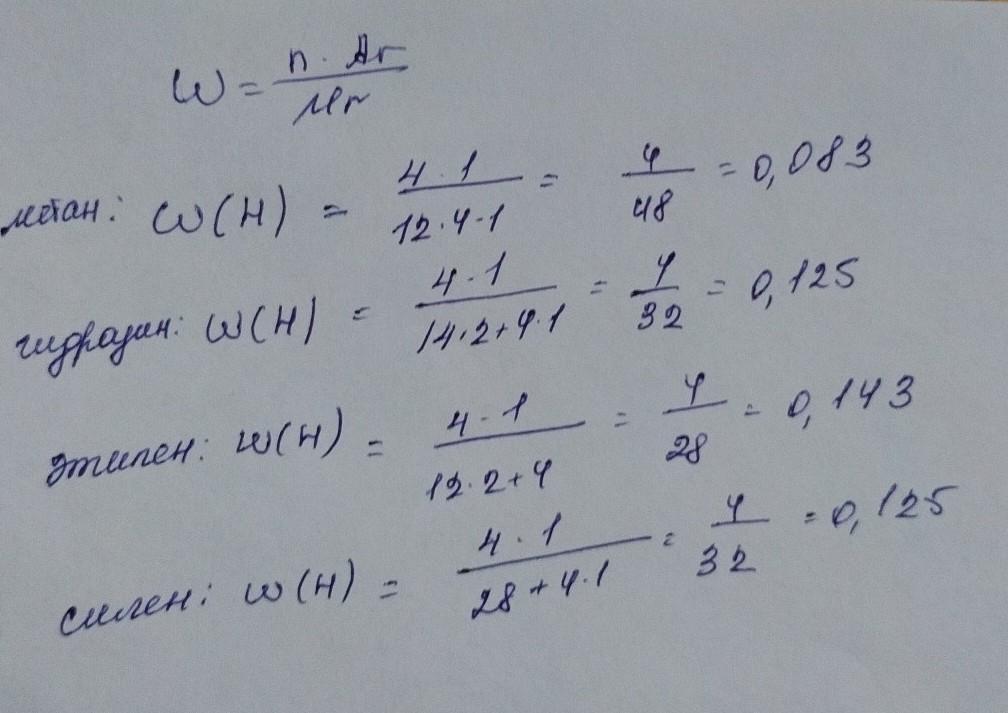 ω = n · Ar / Mr
метан: ω(H) = 4 · 1 / 12 · 4 · 1 = 4 / 48 = 0,083
гидразин: ω(H) = 4 · 1 / 14 · 2 + 4 · 1 = 4 / 32 = 0,125
этилен: ω(H) = 4 · 1 / 12 · 2 + 4 = 4 / 28 = 0,143
силен: ω(H) = 4 · 1 / 28 + 4 · 1 = 4 / 32 = 0,125